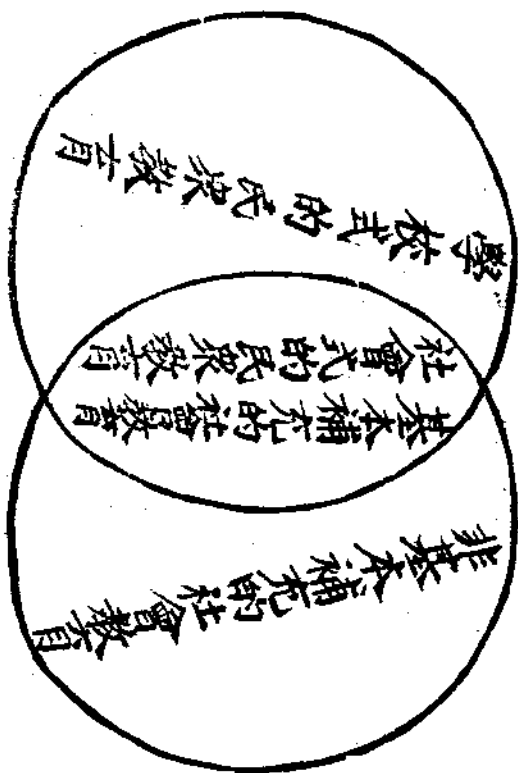 學校式的民眾教育
社會式的民眾教育
基本補充的社會教育
非基本補充的社會教育